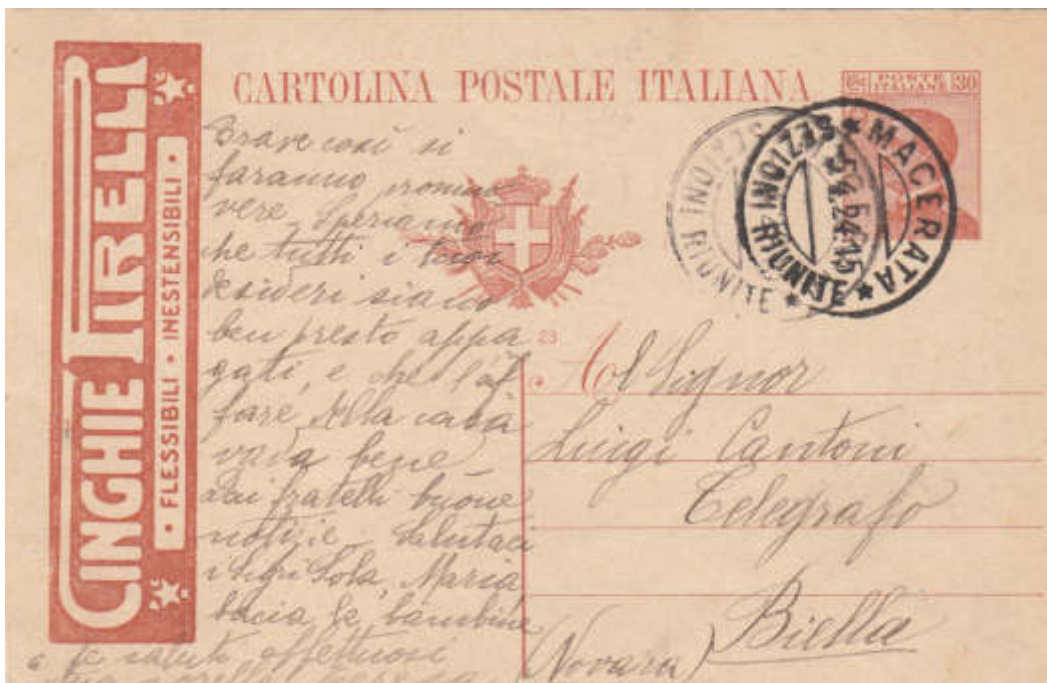 CINGHE PIRELLI
· FLESSIBILI · INESTENSIBILI ·
CARTOLINA POSTALE ITALIANA
Cmi POSTE 30
ITALIANE
MACERATA
SEZIONI RIUNITE
24.15
SEZIONI RIUNITE
Brave così si
faranno promuo
vere. Speriamo
che tutti i tuoi
desideri siano
ben presto appa
gati, e che l'af
fare della casa
vada bene
Dai fratelli buone
notizie. Salutaci
i Sigri Sola, Maria,
bacia le bambine
a te saluti affettuosi
sorella Teresa
23
Al Signor
Luigi Cantoni
Telegrafo
Biella
(Novara)